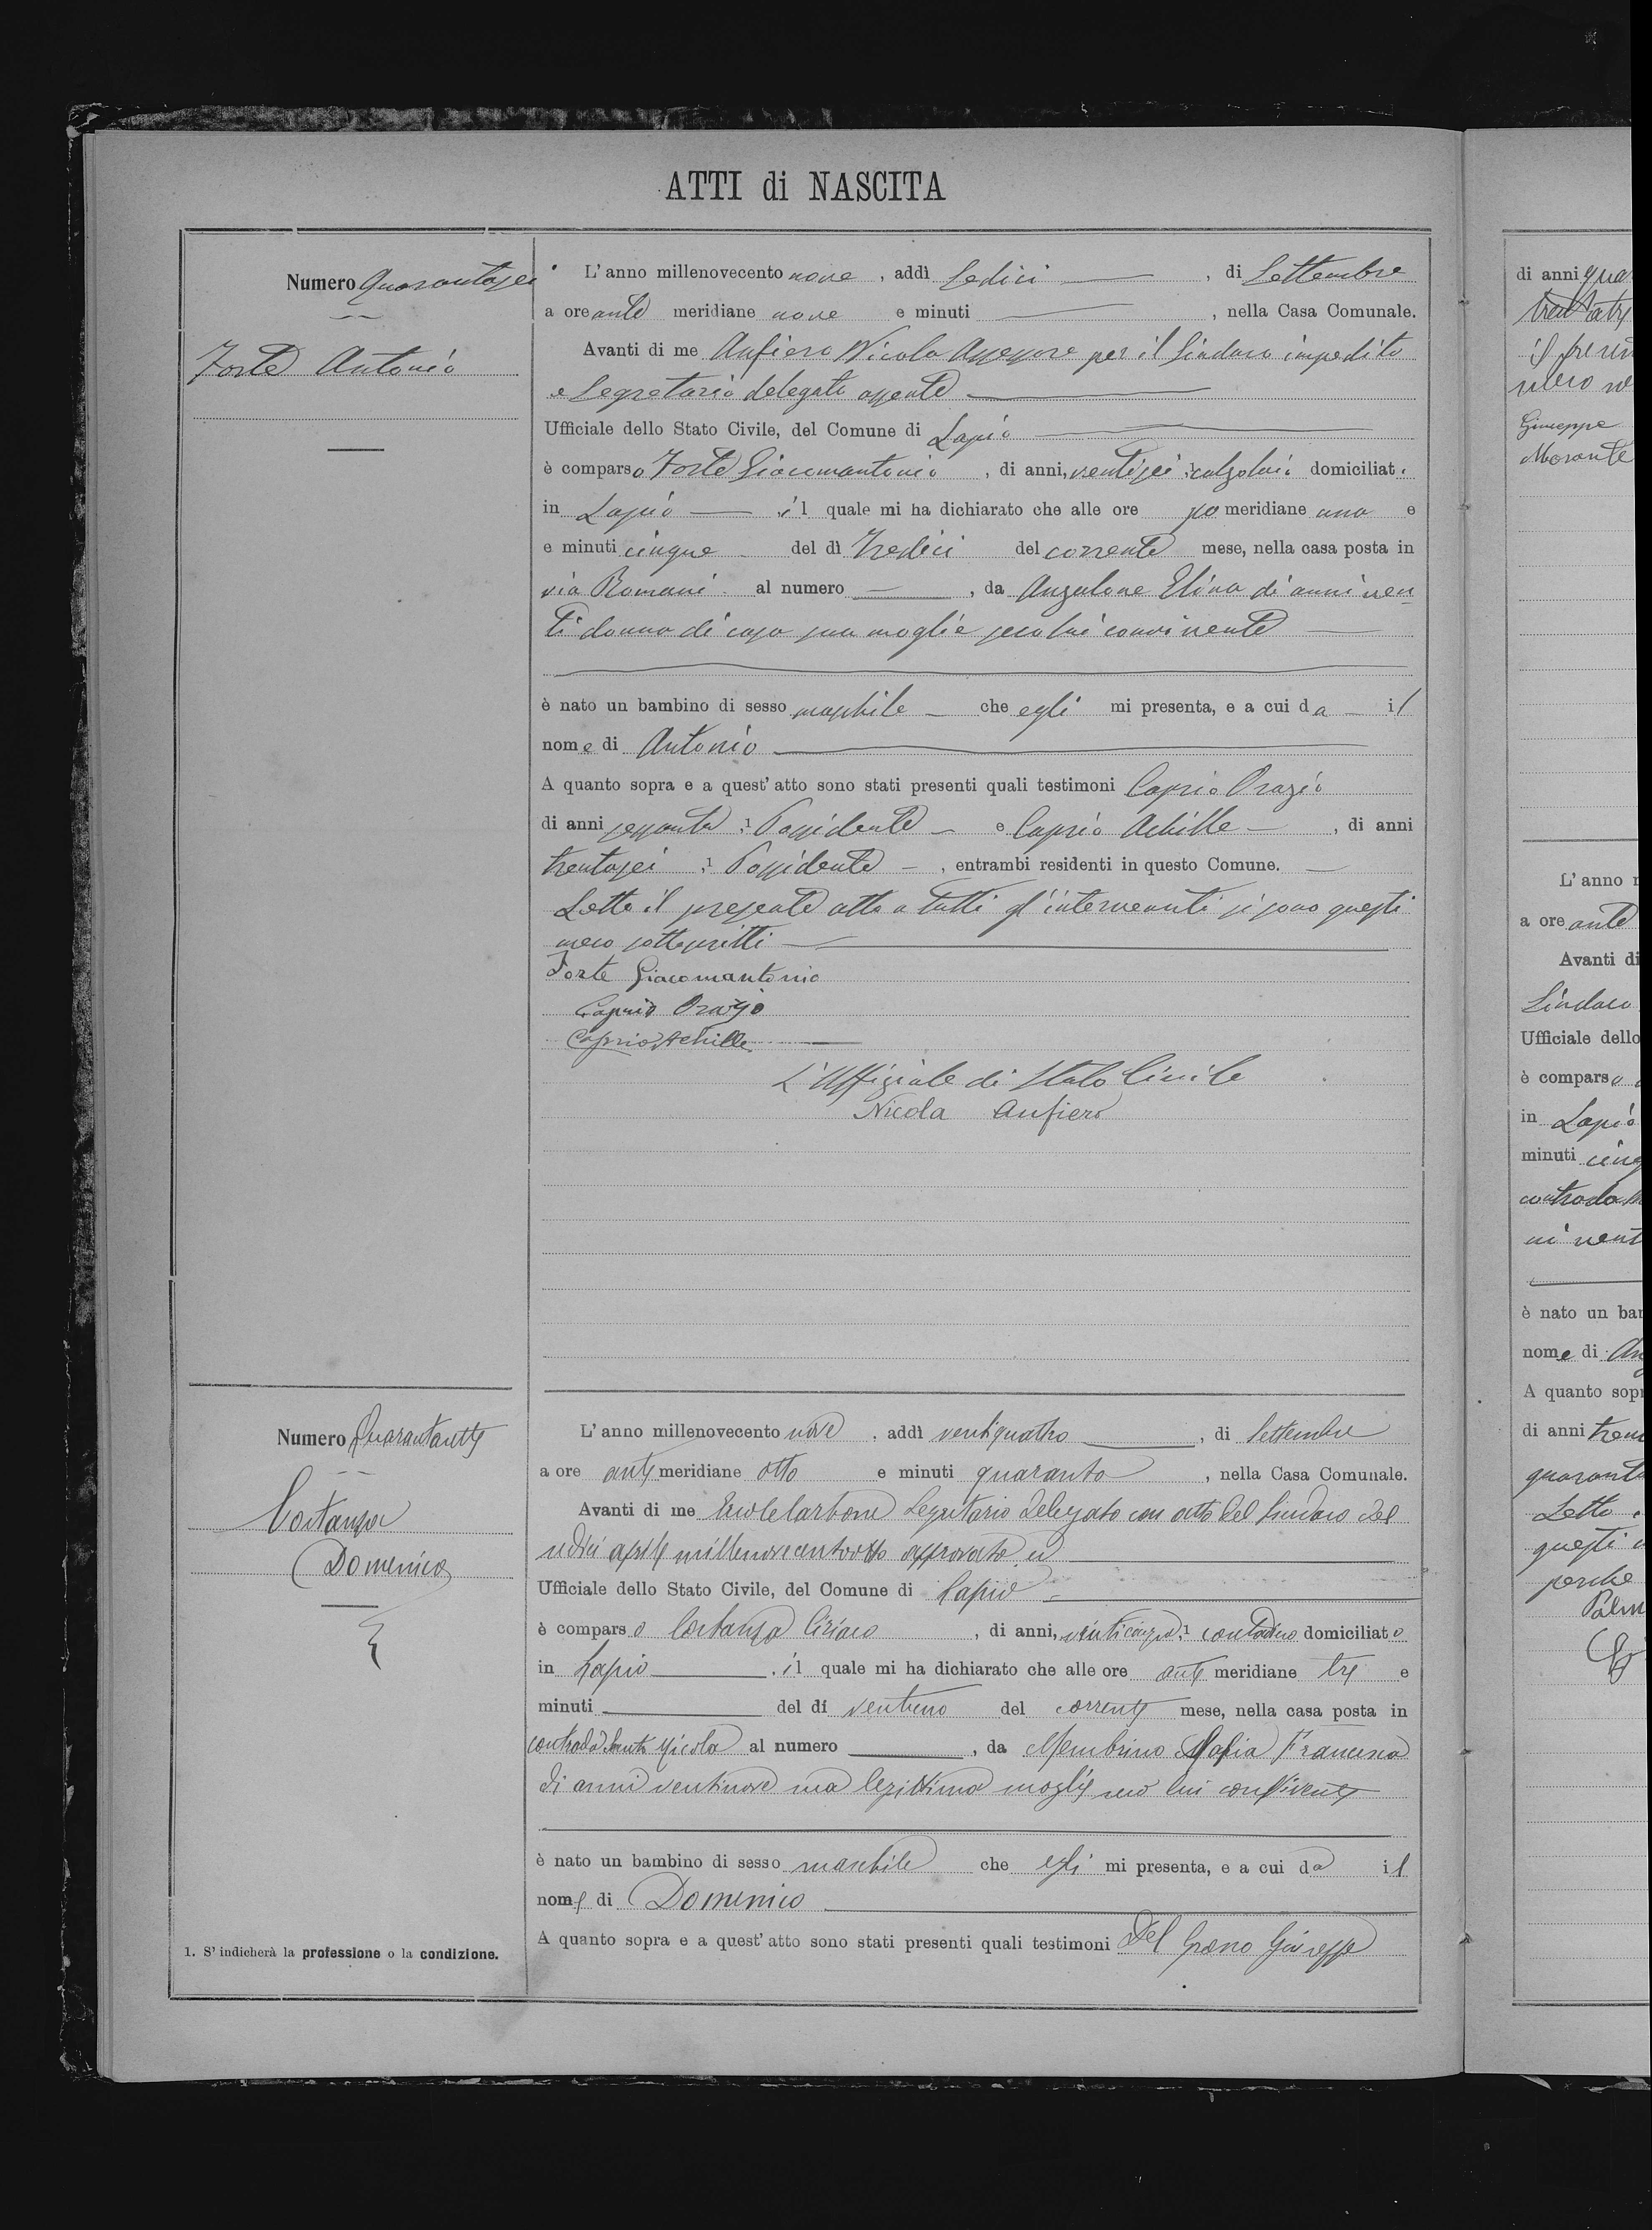 ATTI di NASCITA
Numero Quarantasei
Forte Antonio
L'anno millenovecento nove, addì Sedici, di Settembre
a ore ante meridiane nove e minuti, nella Casa Comunale.
Avanti di me Anfiero Nicola Assessore per il Sindaco impedito
e Segretario delegato assente
Ufficiale dello Stato Civile, del Comune di Lapio
è comparso Forte Giacomantonio, di anni, ventisei 1 calzolaio domiciliat.
in Lapio il quale mi ha dichiarato che alle ore po meridiane una e
e minuti cinque del dì Tredici del corrente mese, nella casa posta in
via Romani al numero, da Anzalone Elina di anni ven-
ti donna di casa sua moglie seco lui convivente
è nato un bambino di sesso maschile che egli mi presenta, e a cui da il
nome di Antonio
A quanto sopra e a quest'atto sono stati presenti quali testimoni Caprio Orazio
di anni sessanta 1 Possidente e Caprio Achille, di anni
trentasei 1 Possidente, entrambi residenti in questo Comune.
Letto il presente atto a tutti gl'intervenuti si sono questi
meco sottoscritti
Forte Giacomantonio
Caprio Orazio
Caprio Achille
L'Uffiziale di Stato Civile
Nicola Anfiero
Numero Quarantasette
Costanza
Domenico
L'anno millenovecento nove, addì ventiquattro, di Settembre
a ore ante meridiane otto e minuti quaranta, nella Casa Comunale.
Avanti di me Ercole Carbone Segretario delegato con atto del Sindaco del
sedici aprile millenovecentootto approvato ed
Ufficiale dello Stato Civile, del Comune di Lapio
è comparso Costanza Ciriaco, di anni, venticinque 1 contadino domiciliato
in Lapio il quale mi ha dichiarato che alle ore ante meridiane tre e
minuti del dì ventuno del corrente mese, nella casa posta in
contrada Santo Nicola al numero, da Membrino Maria Francesca
di anni ventinove sua legittima moglie seco lui convivente
è nato un bambino di sesso maschile che egli mi presenta, e a cui da il
nome di Domenico
A quanto sopra e a quest'atto sono stati presenti quali testimoni Del Grano Giuseppe
1. S'indicherà la professione o la condizione.
di anni qua
trentatre
il presen
meco
Giuseppe
Morante
L'anno
a ore ante
Avanti di
Sindaco
Ufficiale dello
è comparso
in Lapio
minuti cinq
contrada
ni vent
è nato un bam
nome di An
A quanto sop
di anni tren
quaranta
Letto
questi
perche
Palm